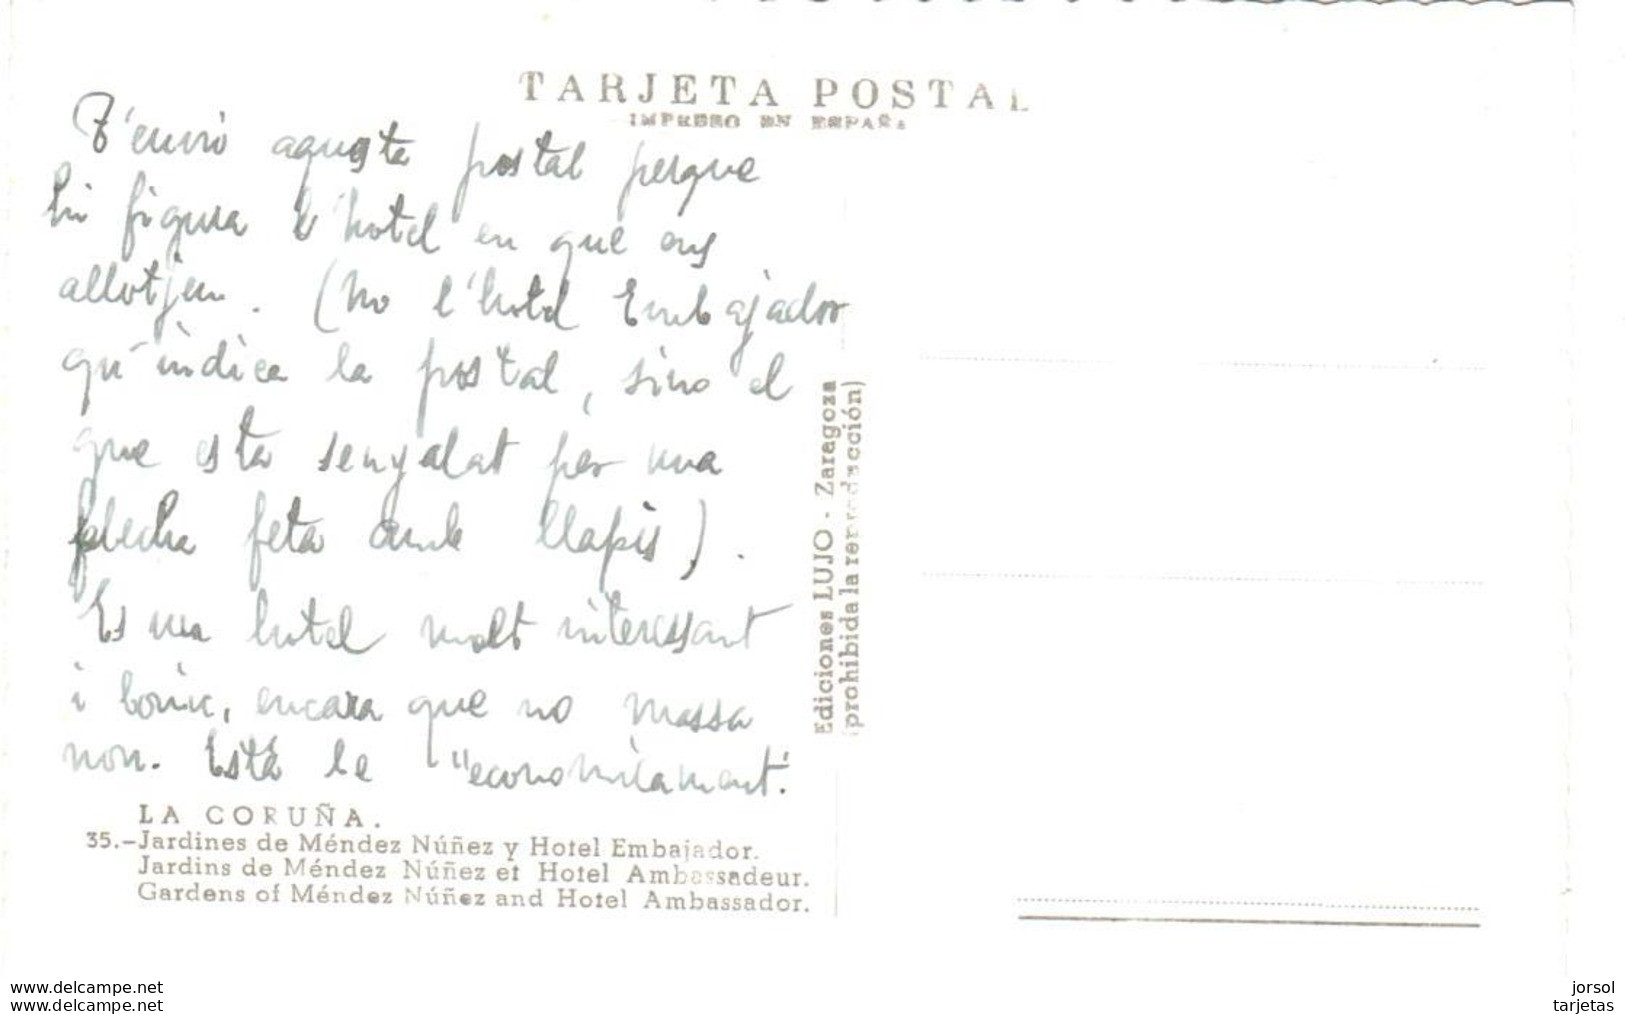 TARJETA POSTAL
IMPRESO EN ESPAÑA
T'envio aquesta postal perque
hi figura l'hotel en que ens
allotjem. (No l'hotel Embajador
qu'indica la postal, sino el
que esta senyalat per una
flecha feta amb llapis).
Es un hotel molt interessant
i bonic, encara que no massa
nou. Està be "economicament".
LA CORUÑA.
35.-Jardines de Méndez Núñez y Hotel Embajador.
Jardins de Méndez Núñez et Hotel Ambassadeur.
Gardens of Méndez Núñez and Hotel Ambassador.
Ediciones LUJO - Zaragoza
(prohibida la reproducción)
www.delcampe.net
www.delcampe.net
jorsol
tarjetas